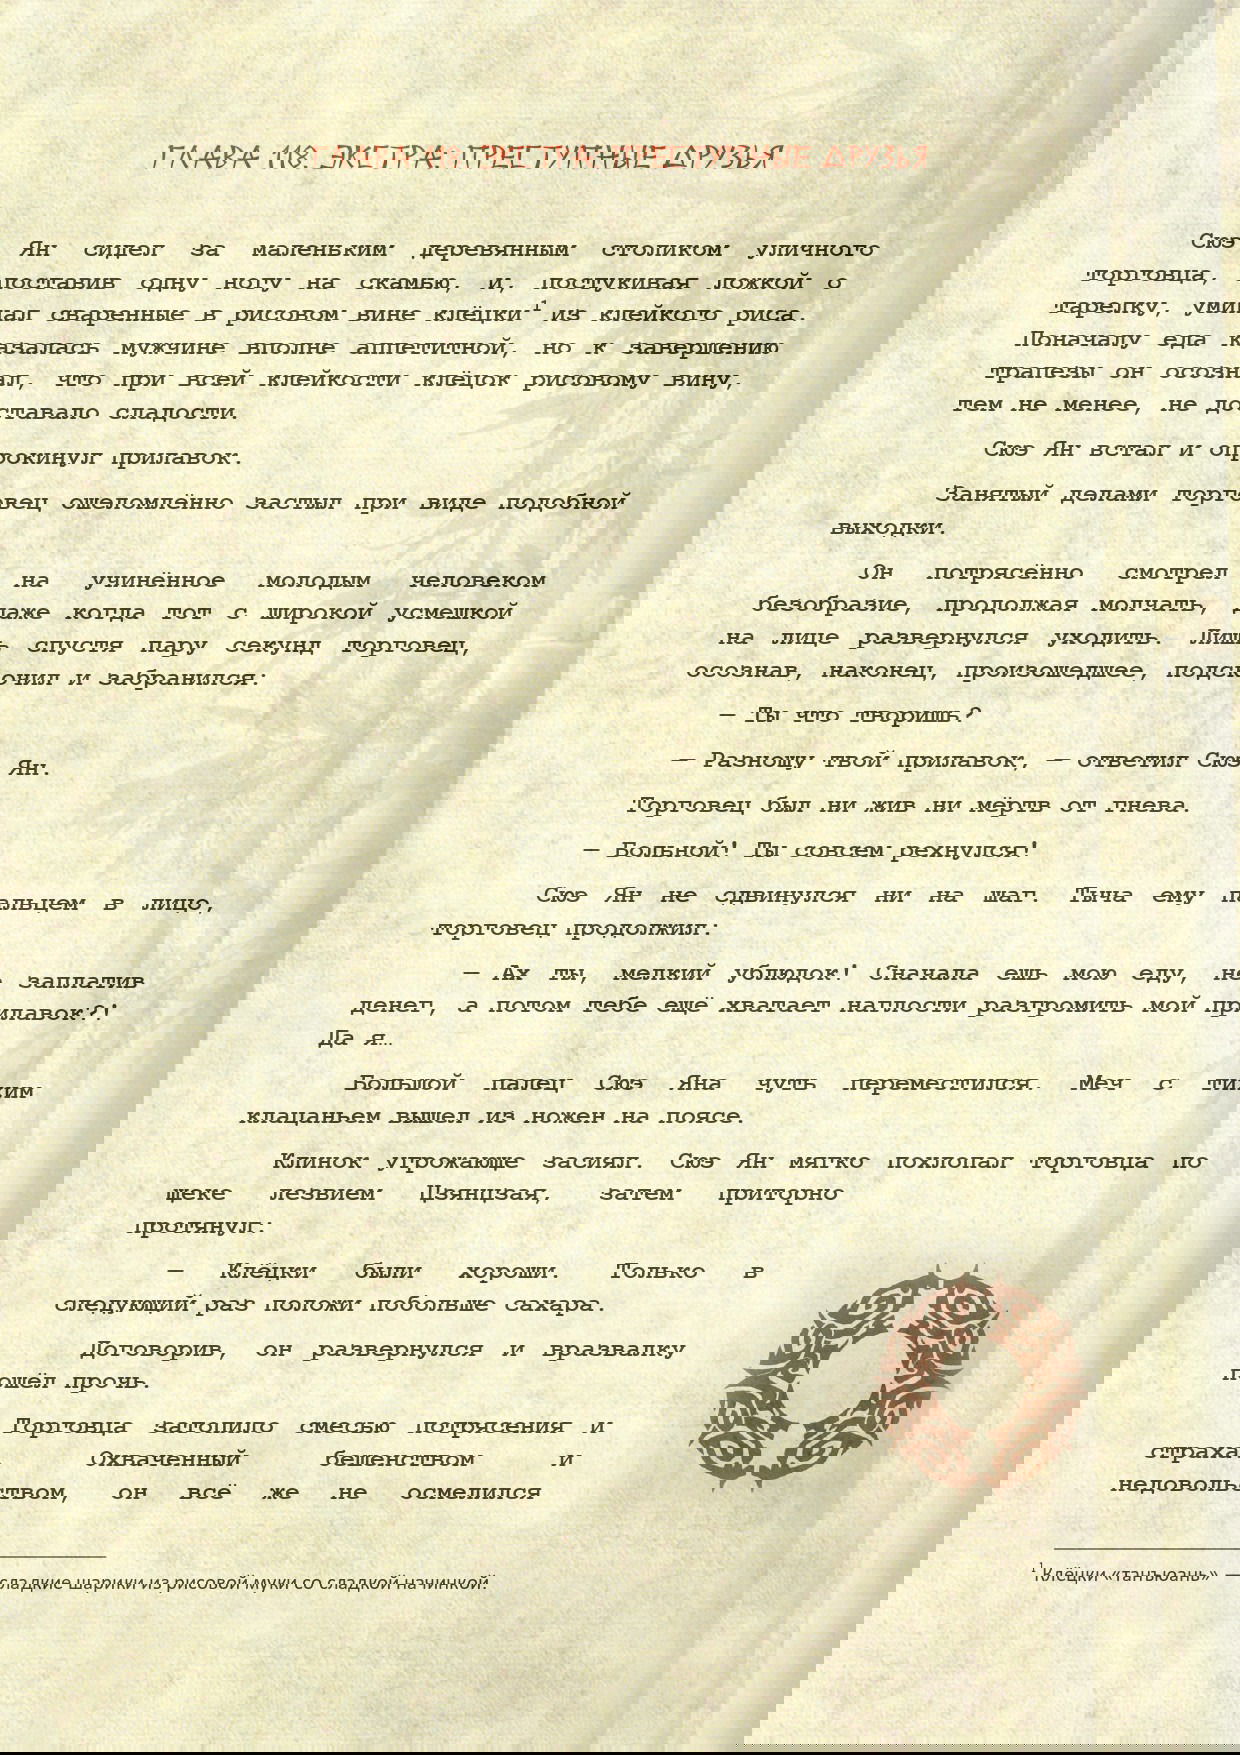 ГЛАВА 118. ЭКСТРА: ПРЕСТУПНЫЕ ДРУЗЬЯ
Сюэ Ян сидел за маленьким деревянным столиком уличного
торговца, поставив одну ногу на скамью, и, постукивая ложкой о
тарелку, уминал сваренные в рисовом вине клёцки1 из клейкого риса.
Поначалу еда казалась мужчине вполне аппетитной, но к завершению
трапезы он осознал, что при всей клейкости клёцок рисовому вину,
тем не менее, не доставало сладости.
Сюэ Ян встал и опрокинул прилавок.
Занятый делами торговец ошеломлённо застыл при виде подобной
выходки.
Он потрясённо смотрел на учинённое молодым человеком
безобразие, продолжая молчать, даже когда тот с широкой усмешкой
на лице развернулся уходить. Лишь спустя пару секунд торговец,
осознав, наконец, произошедшее, подскочил и забранился:
— Ты что творишь?
— Разношу твой прилавок, — ответил Сюэ Ян.
Торговец был ни жив ни мёртв от гнева.
— Больной! Ты совсем рехнулся!
Сюэ Ян не сдвинулся ни на шаг. Тыча ему пальцем в лицо,
торговец продолжил:
— Ах ты, мелкий ублюдок! Сначала ешь мою еду, не заплатив
денег, а потом тебе ещё хватает наглости разгромить мой прилавок?!
Да я…
Большой палец Сюэ Яна чуть переместился. Меч с тихим
клацаньем вышел из ножен на поясе.
Клинок угрожающе засиял. Сюэ Ян мягко похлопал торговца по
щеке лезвием Цзянцзая, затем приторно
протянул:
— Клёцки были хороши. Только в
следующий раз положи побольше сахара.
Договорив, он развернулся и вразвалку
пошёл прочь.
Торговца затопило смесью потрясения и
страха. Охваченный бешенством и
недовольством, он всё же не осмелился
1 Клёцки «танъюань» — сладкие шарики из рисовой муки со сладкой начинкой.